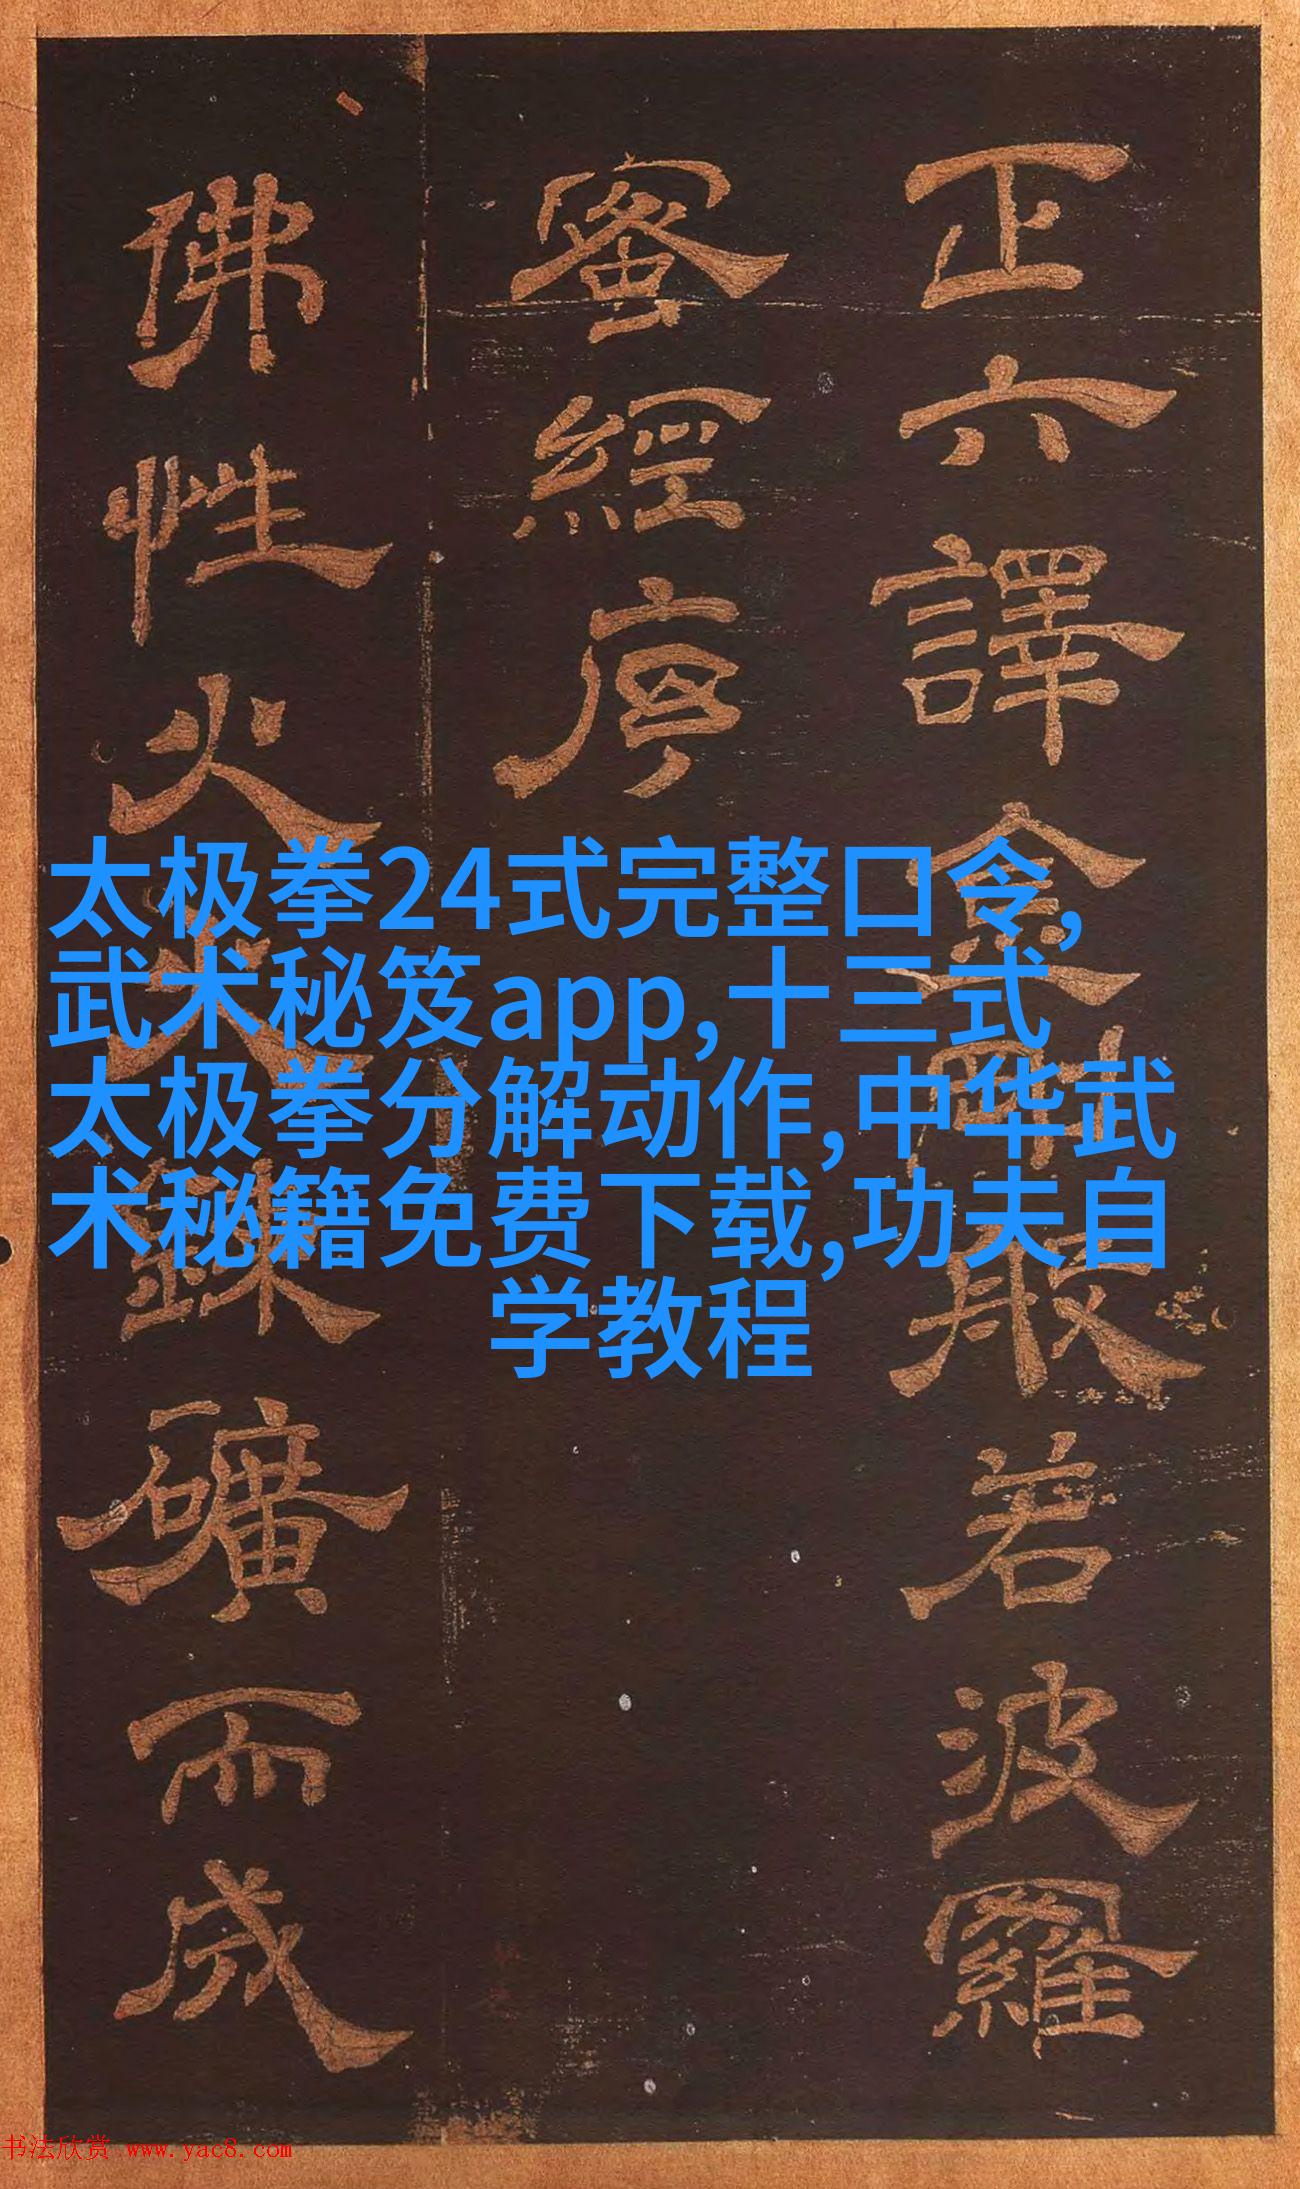 正六譯金剛般若波羅
蜜經序
佛性火
鑛而成
太极拳24式完整口令,
武术秘笈app,十三式
太极拳分解动作,中华武
术秘籍免费下载,功夫自
学教程
书法欣赏 www.yac8.com